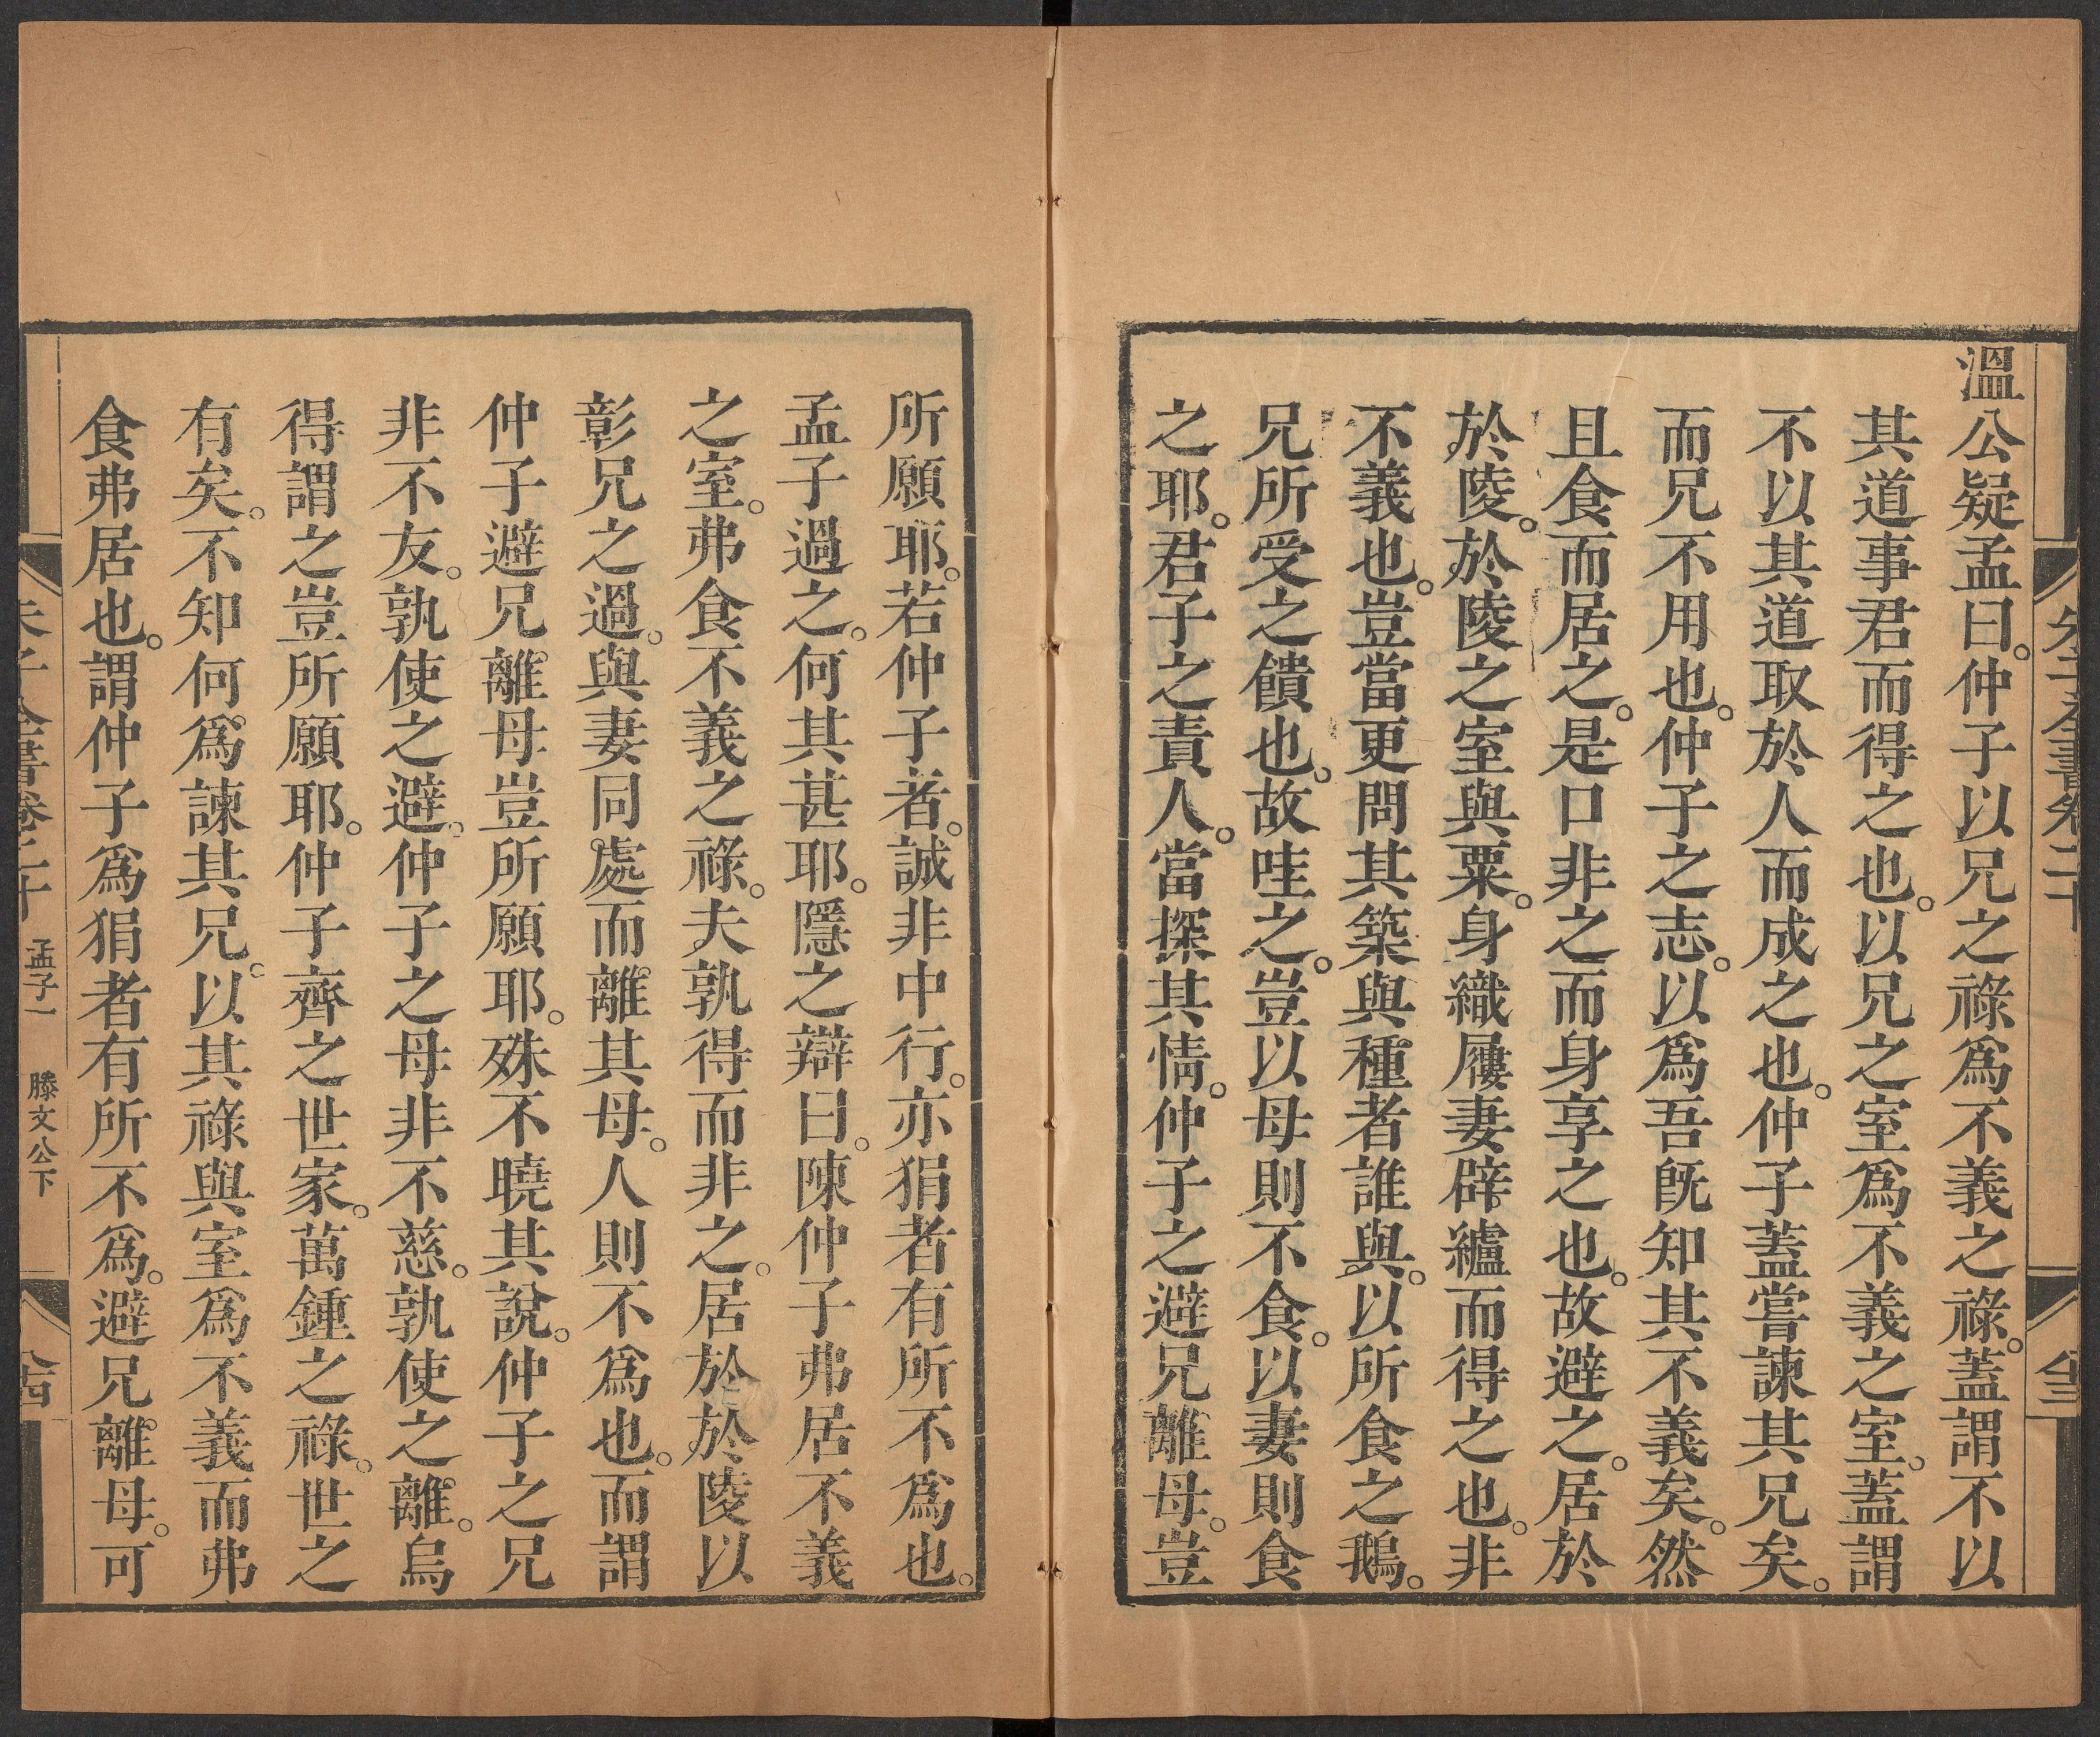 溫公疑孟曰。仲子以兄之祿爲不義之祿。蓋謂不以
其道事君而得之也。以兄之室爲不義之室。蓋謂
不以其道取於人而成之也。仲子蓋嘗諫其兄矣。
而兄不用也。仲子之志。以爲吾旣知其不義矣。然
且食而居之。是口非之而身享之也。故避之。居於
於陵。於陵之室與粟。身織屨妻辟纑而得之也。非
不義也。豈當更問其築與種者誰與。以所食之鵝。
兄所受之饋也。故哇之。豈以母則不食。以妻則食
之耶。君子之責人。當探其情。仲子之避兄離母。豈
所願耶。若仲子者。誠非中行。亦狷者有所不爲也。
孟子過之。何其甚耶。隱之辯曰。陳仲子弗居不義
之室。弗食不義之祿。夫孰得而非之。居於於陵以
彰兄之過。與妻同處而離其母。人則不爲也。而謂
仲子避兄離母豈所願耶。殊不曉其說。仲子之兄
非不友。孰使之避。仲子之母非不慈。孰使之離。烏
得謂之豈所願耶。仲子齊之世家。萬鍾之祿。世之
有矣。不知何爲諫其兄。以其祿與室爲不義而弗
食弗居也。謂仲子爲狷者有所不爲。避兄離母。可
孟子一 滕文公下